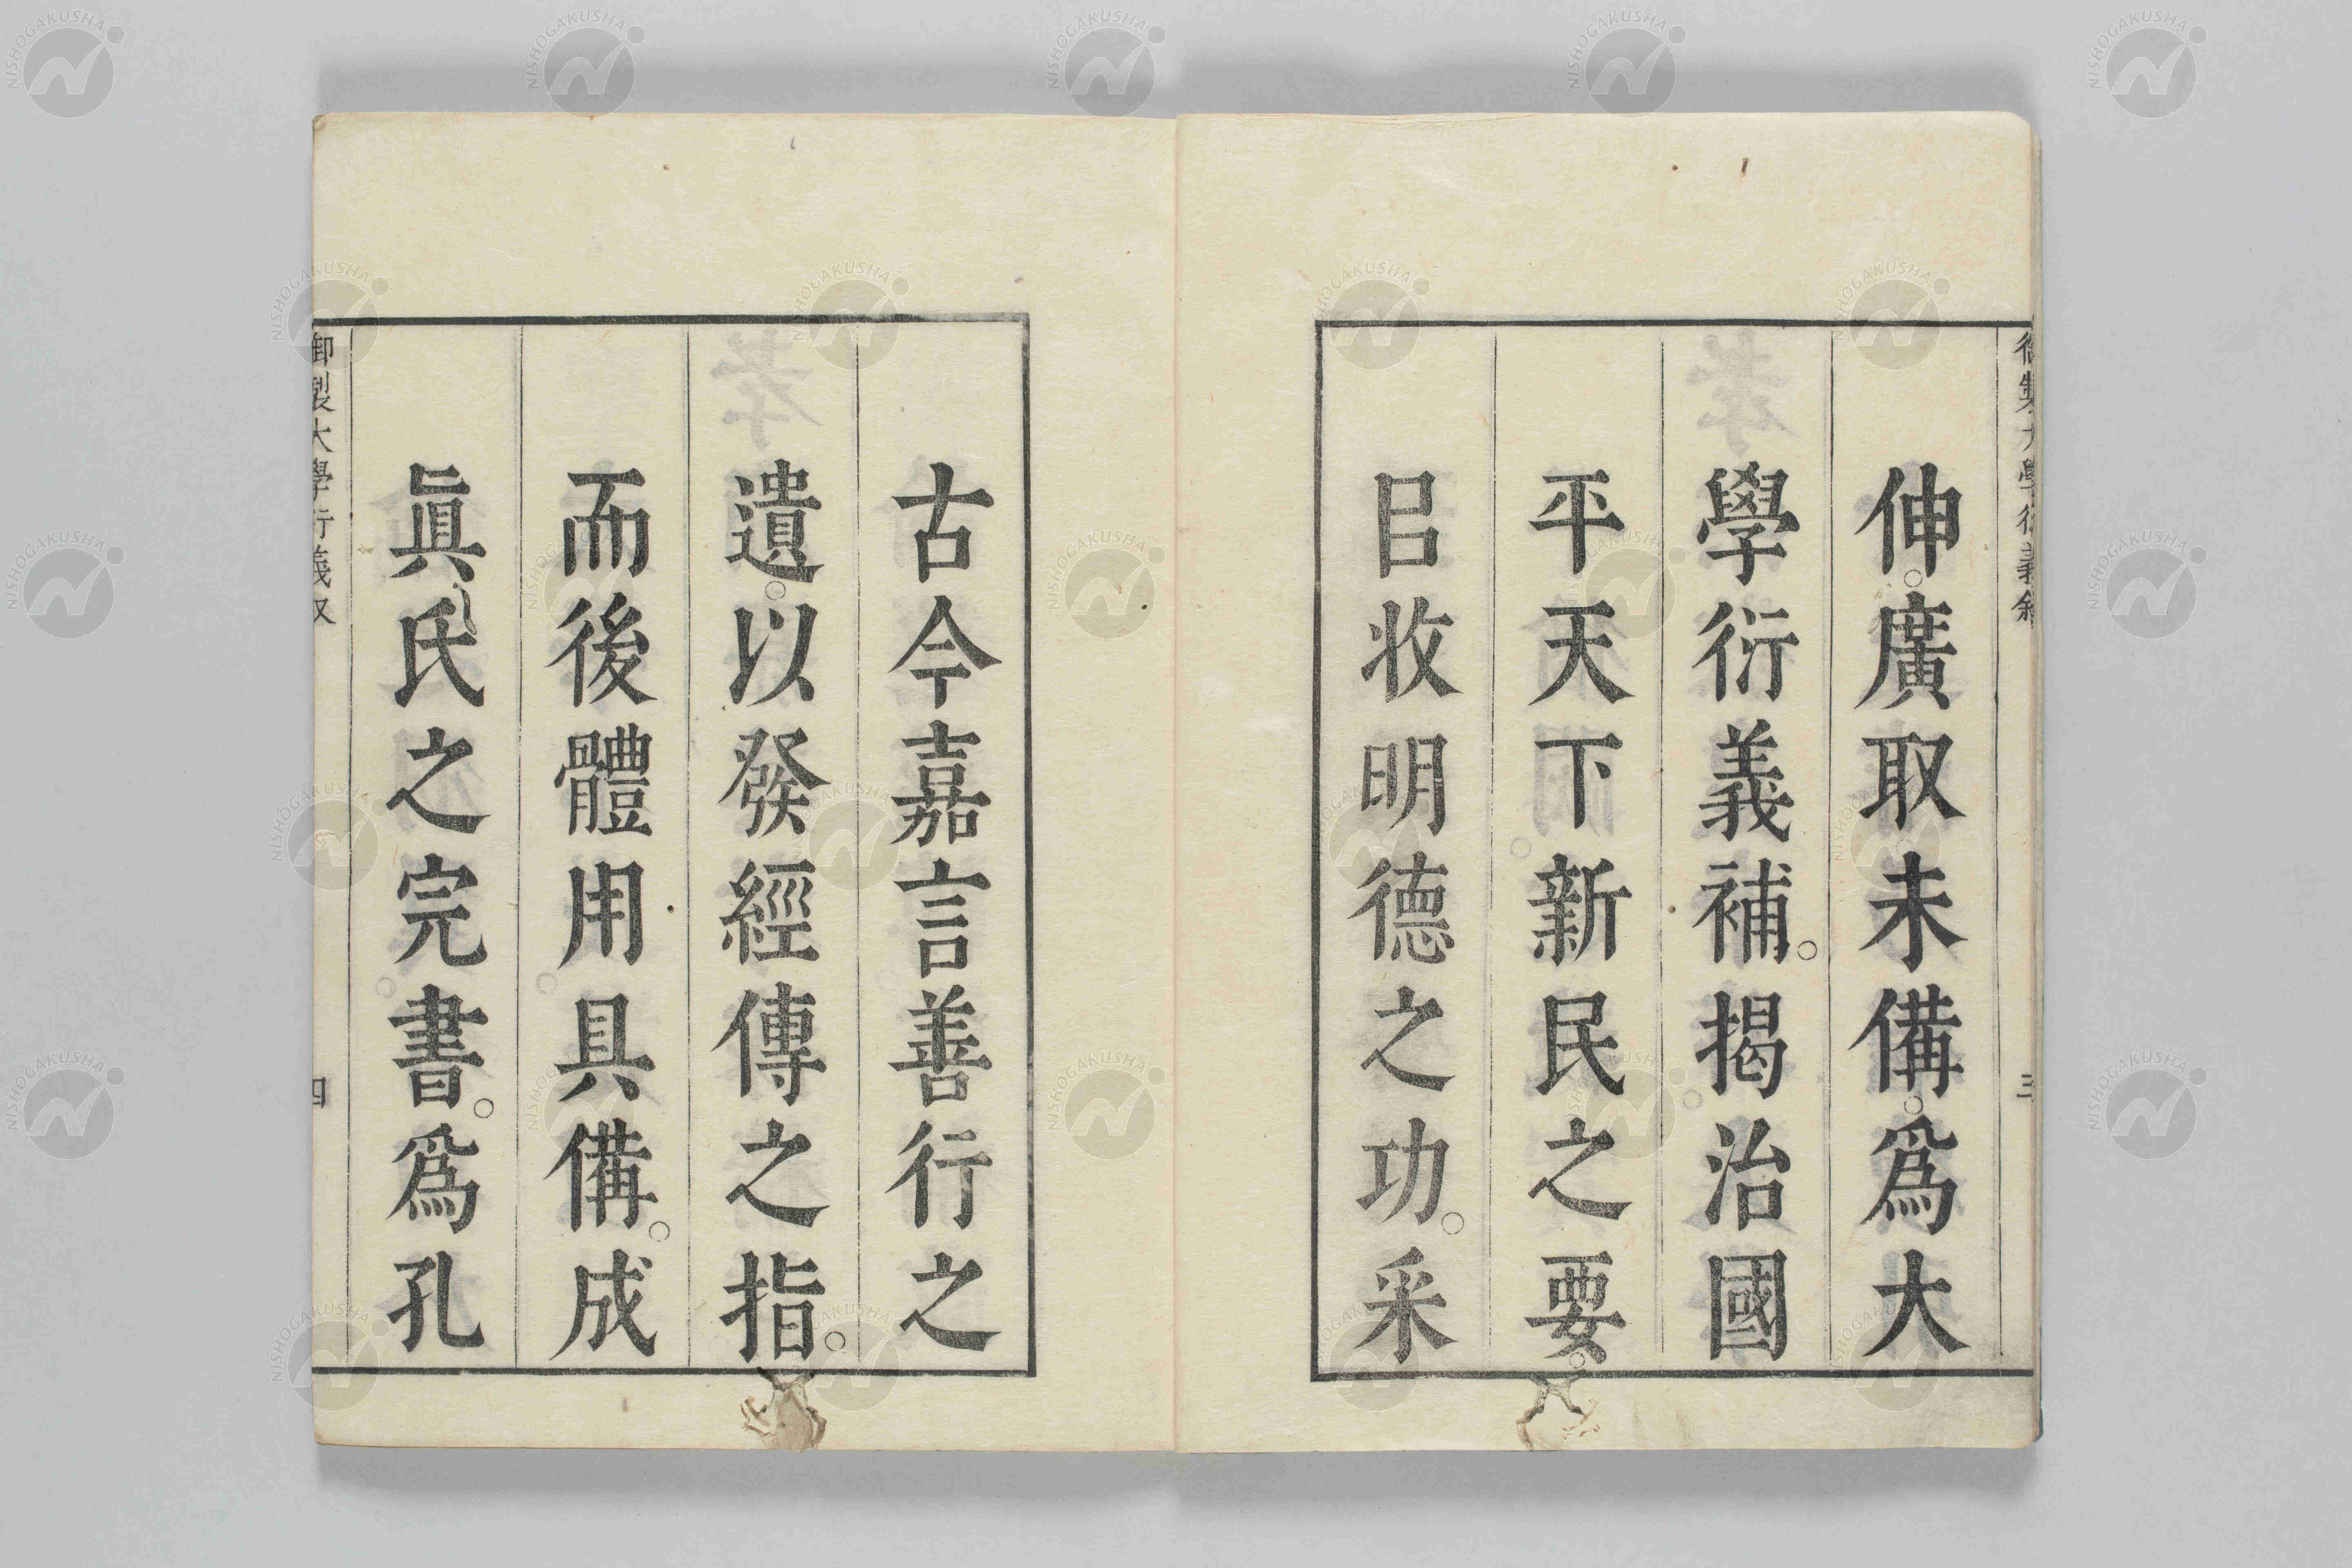 伸○廣取未備○爲大
學衍義補○揭治國
平天下新民之要○
㠯收明德之功○采
古今嘉言善行之
遺○以發經傳之指○
而後體用具備○成
眞氏之完書○爲孔
御製大學衍義叙
四
NISHOGAKUSHA